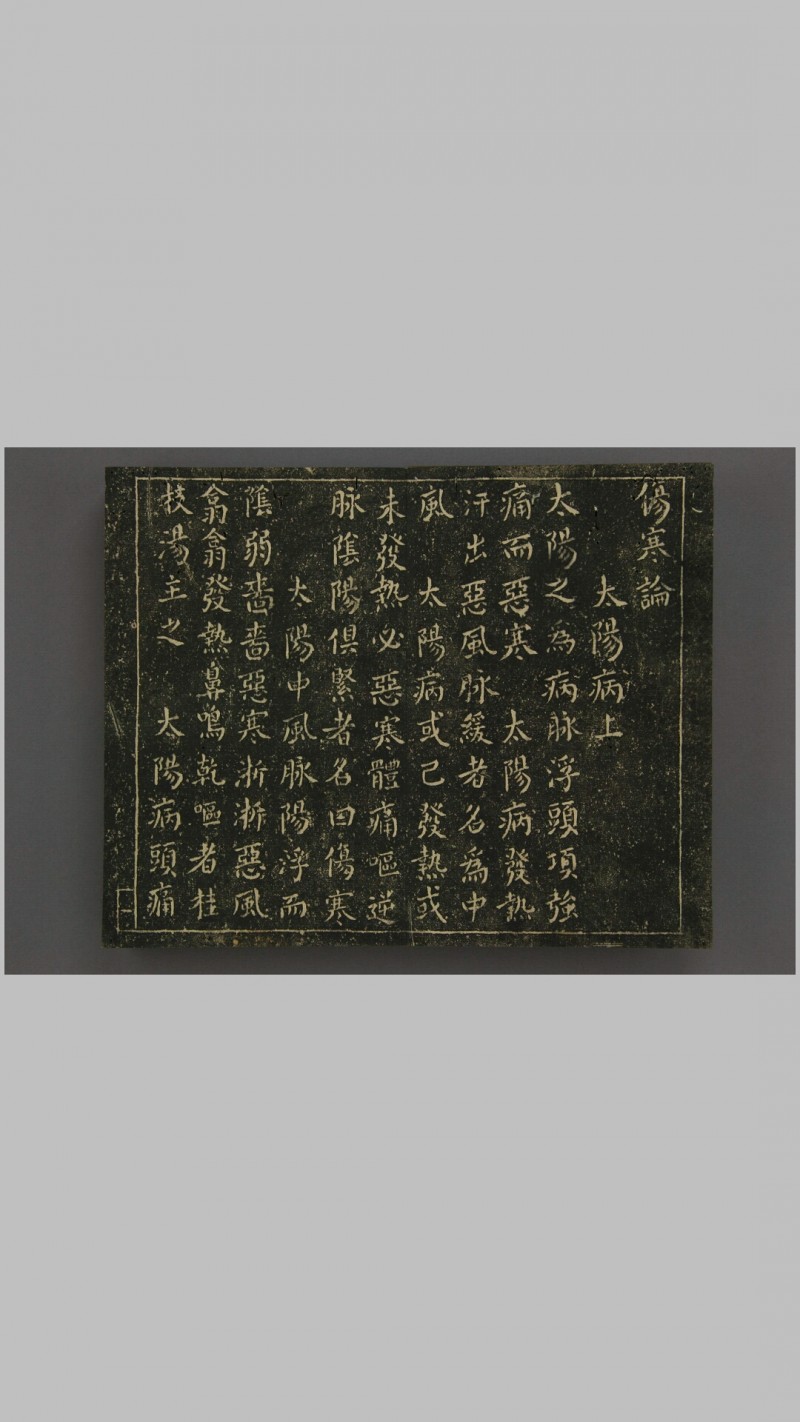 傷寒論
太陽病上
太陽之為病脉浮頭項強
痛而惡寒　太陽病發熱
汗出惡風脉緩者名為中
風　太陽病或已發熱或
未發熱必惡寒體痛嘔逆
脉陰陽俱緊者名曰傷寒
太陽中風脉陽浮而
陰弱嗇嗇惡寒淅淅惡風
翕翕發熱鼻鳴乾嘔者桂
枝湯主之　太陽病頭痛
一